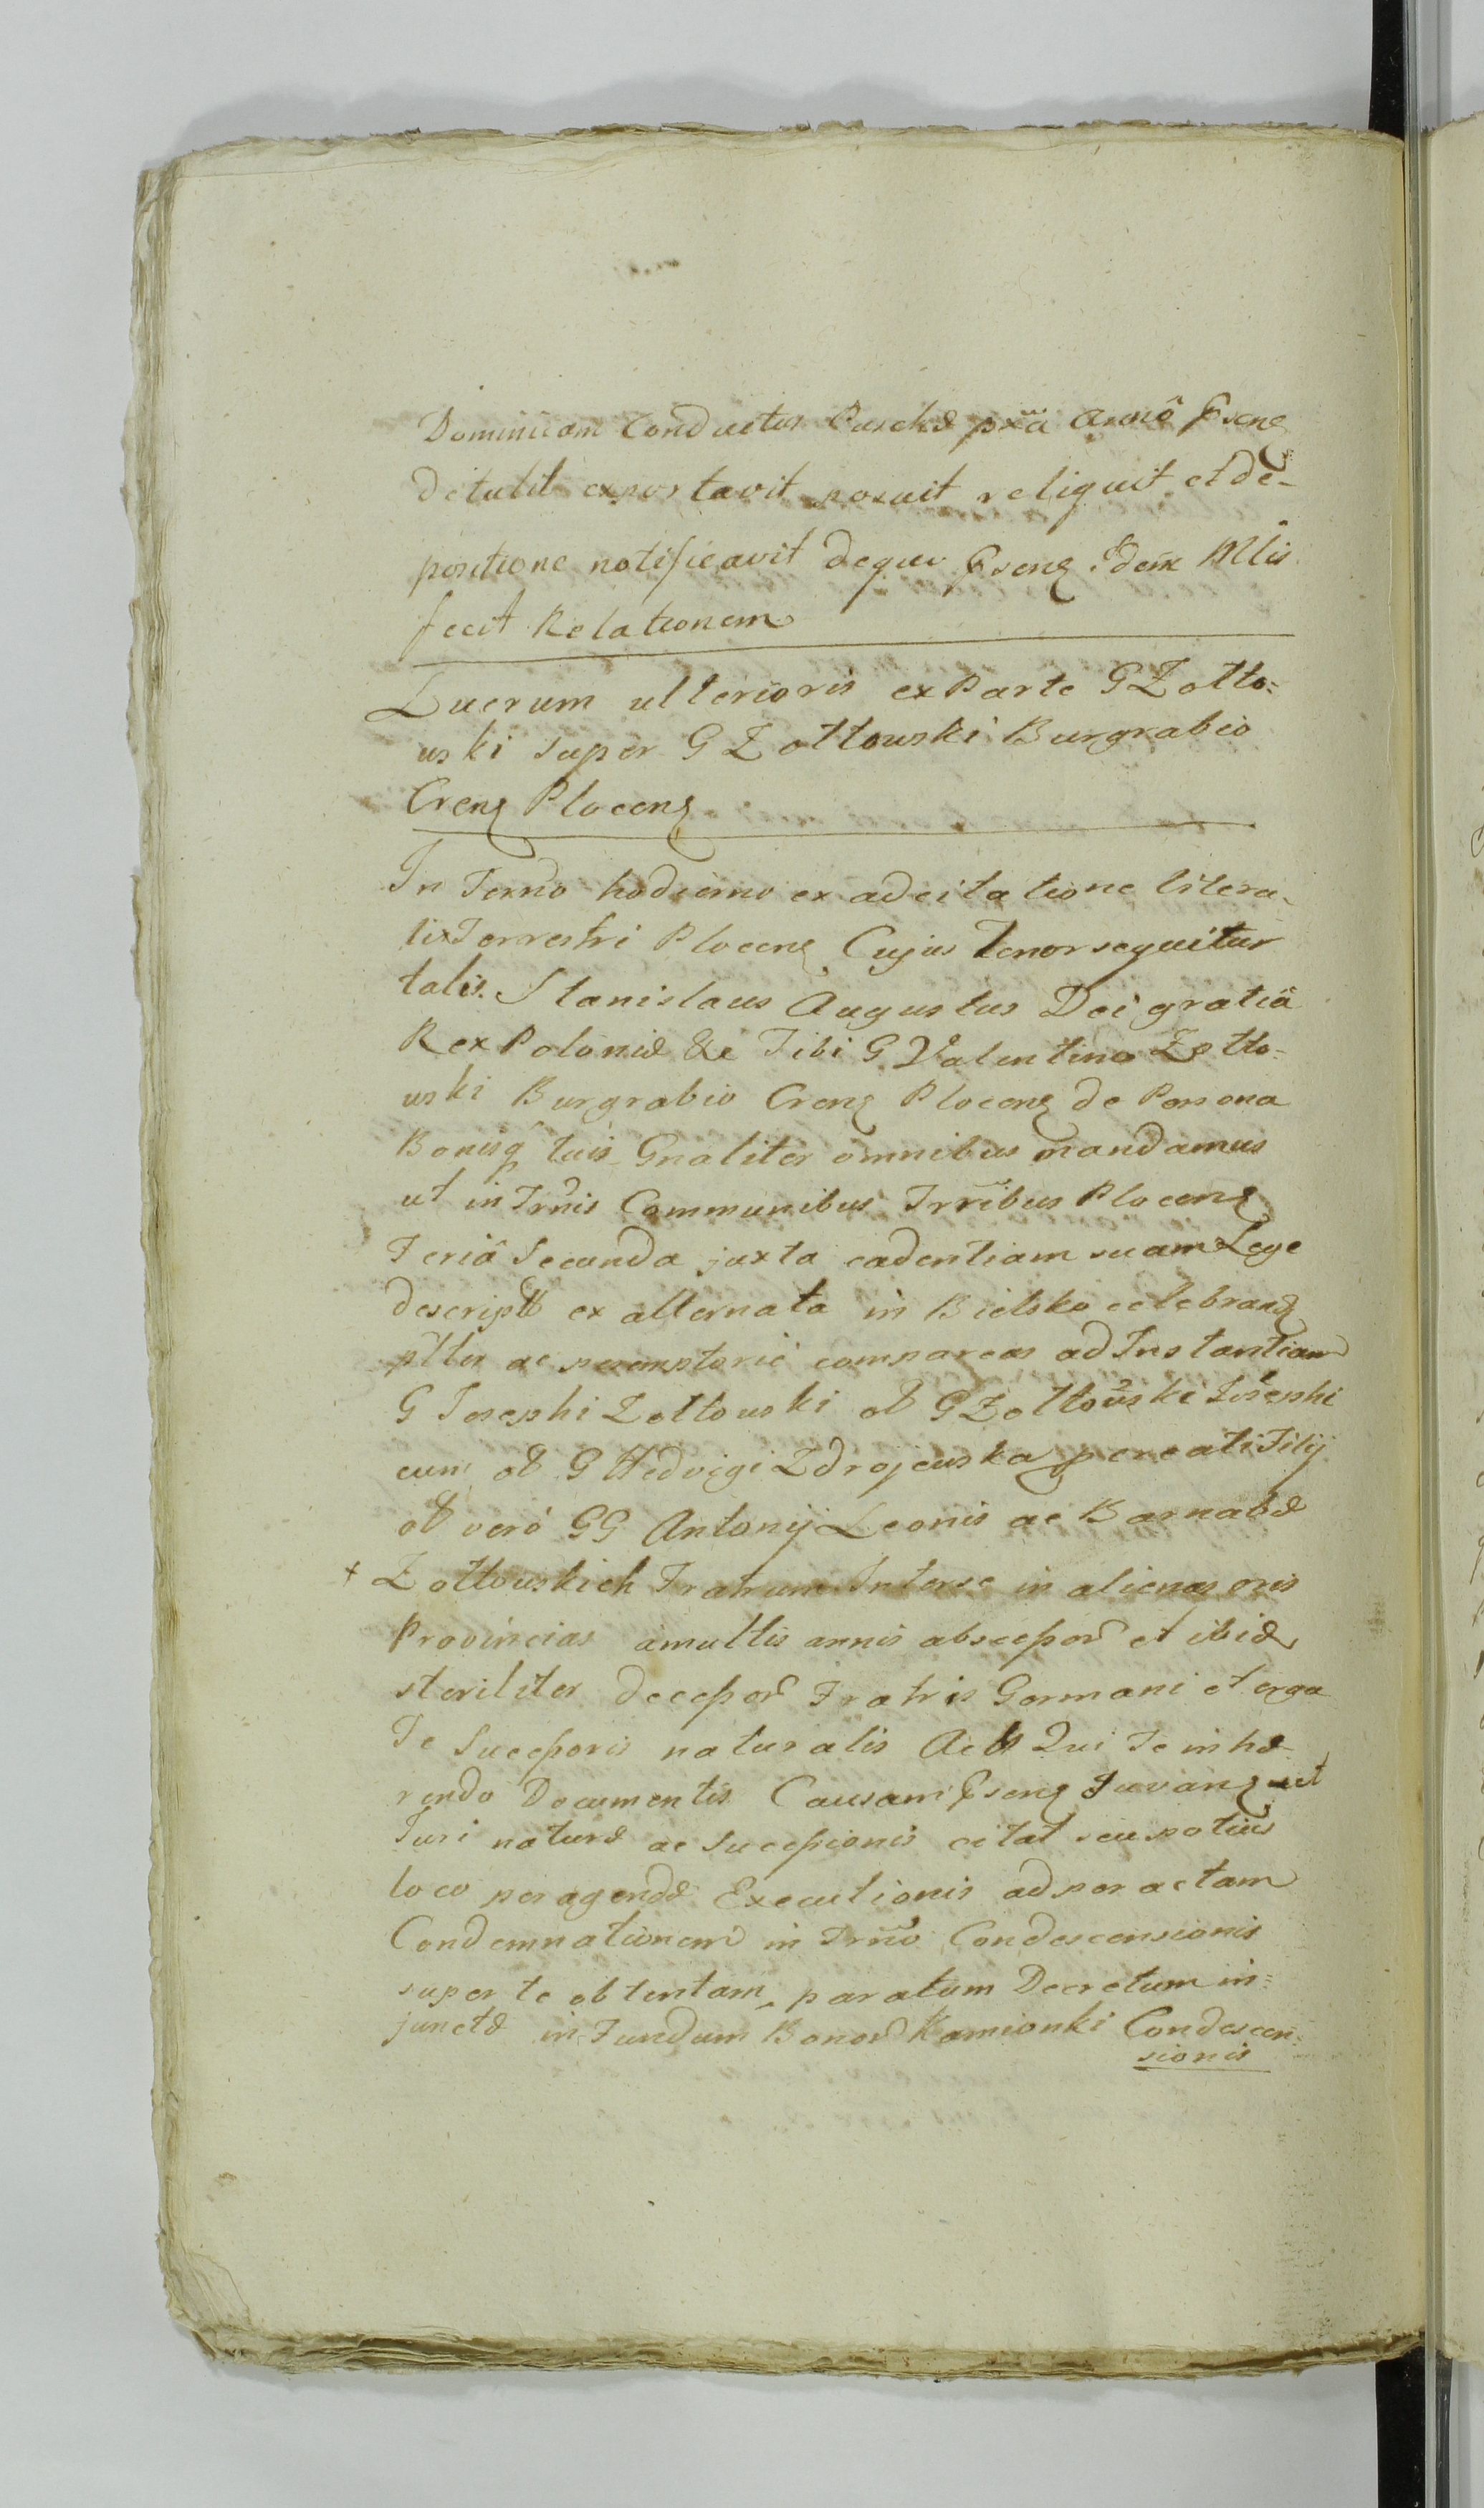 Dominicam Conductus Pusckæ pxa Anno psenꝫ
detulit exportavit posuit reliquit et de-
positione notificavit dequo psenꝫ idem Mlis
fecit Relationem
Lucrum ulterioris ex Parte G Zołto=
wski super G Zołtowski Burgrabio
Crenꝫ Plocenꝫ
In Termo hodierno ex adcitatione litera-
li Terrestri Plocenꝫ Cujus Tenor sequitur
talis. Stanislaus Augustus Dei gratiâ
Rex Poloniæ &c Tibi G Valentino Zołto-
wski Burgrabio Crenꝫ Plocenꝫ de Persona
Bonisq tuis Gnaliter omnibus mandamus
ut in Trnis Communibus Trribus Plocenꝫ
Feriâ Secunda juxta cadentiam suam Lege
descript ex alternata in Bielsko celebranꝫ
ptter ac peremptorie compareas ad Instantiam
G Josephi Zołtowski ol G Zołtowski Josephi
cum ol G Hedvigi Zdrojewska procreati Filij
ol vero GG Antonij Leonis ac Barnabæ
+ Zołtowskich Fratrum Inter se in alienas oris
Provincias a multis annis abscessor et ibid
steriliter decessor Fratris Germani et erga
Te Successoris naturalis Actꝫ Qui Te inhæ-
rendo Documentis Causam psenꝫ Juvanꝫ ut
Juri naturæ ac Successionis citat seu potius
loco peragendæ Executionis ad peractam
Condemnationem in Trno Condescensionis
super te obtentam, paratum Decretum in=
junctæ in Fundum Bonor Kamionki Condescen=
sionis